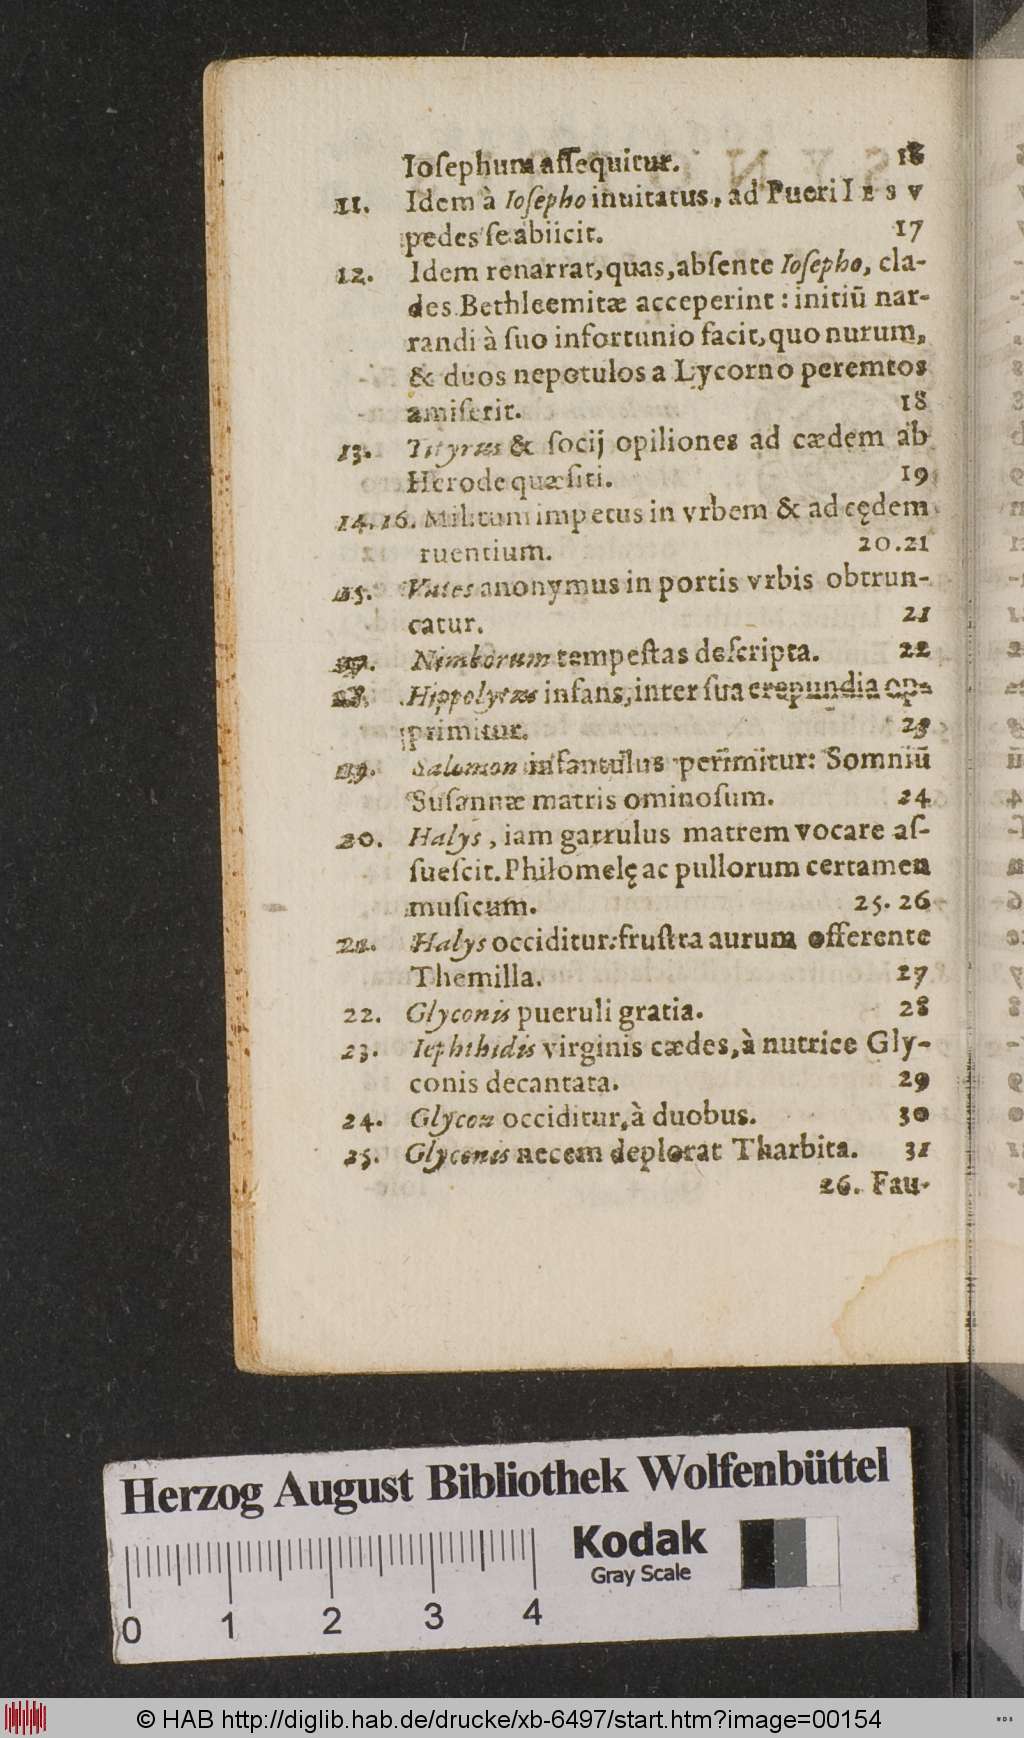 Ioſephum aſſequitur. 16
11. Idem à Ioſepho inuitatus, ad Pueri IESV
pedes ſe abiicit. 17
12. Idem renarrat, quas, abſente Ioſepho, cla-
des Bethleemitæ acceperint : initiū nar-
randi à ſuo infortunio facit, quo nurum,
& duos nepotulos a Lycorno peremtos
amiſerit. 18
13. Tityrus & ſocij opiliones ad cædem ab
Herode quæſiti. 19
14. 16. Militum impetus in vrbem & ad cędem
ruentium. 20. 21
15. Vates anonymus in portis vrbis obtrun-
catur. 21
17. Nimborum tempeſtas deſcripta. 22
18. Hippolytus infans, inter ſua crepundia op-
primitur. 23
19. Salomon infantulus perimitur: Somniū
Suſannæ matris ominoſum. 24
20. Halys, iam garrulus matrem vocare aſ-
ſueſcit. Philomelę ac pullorum certamen
muſicum. 25. 26
21. Halys occiditur: fruſtra aurum offerente
Themilla. 27
22. Glyconis pueruli gratia. 28
23. Iephthidis virginis cædes, à nutrice Gly-
conis decantata. 29
24. Glycon occiditur, à duobus. 30
25. Glyconis necem deplorat Tharbita. 31
26. Fau-
Herzog August Bibliothek Wolfenbüttel
Kodak
Gray Scale
0 1 2 3 4
© HAB http://diglib.hab.de/drucke/xb-6497/start.htm?image=00154